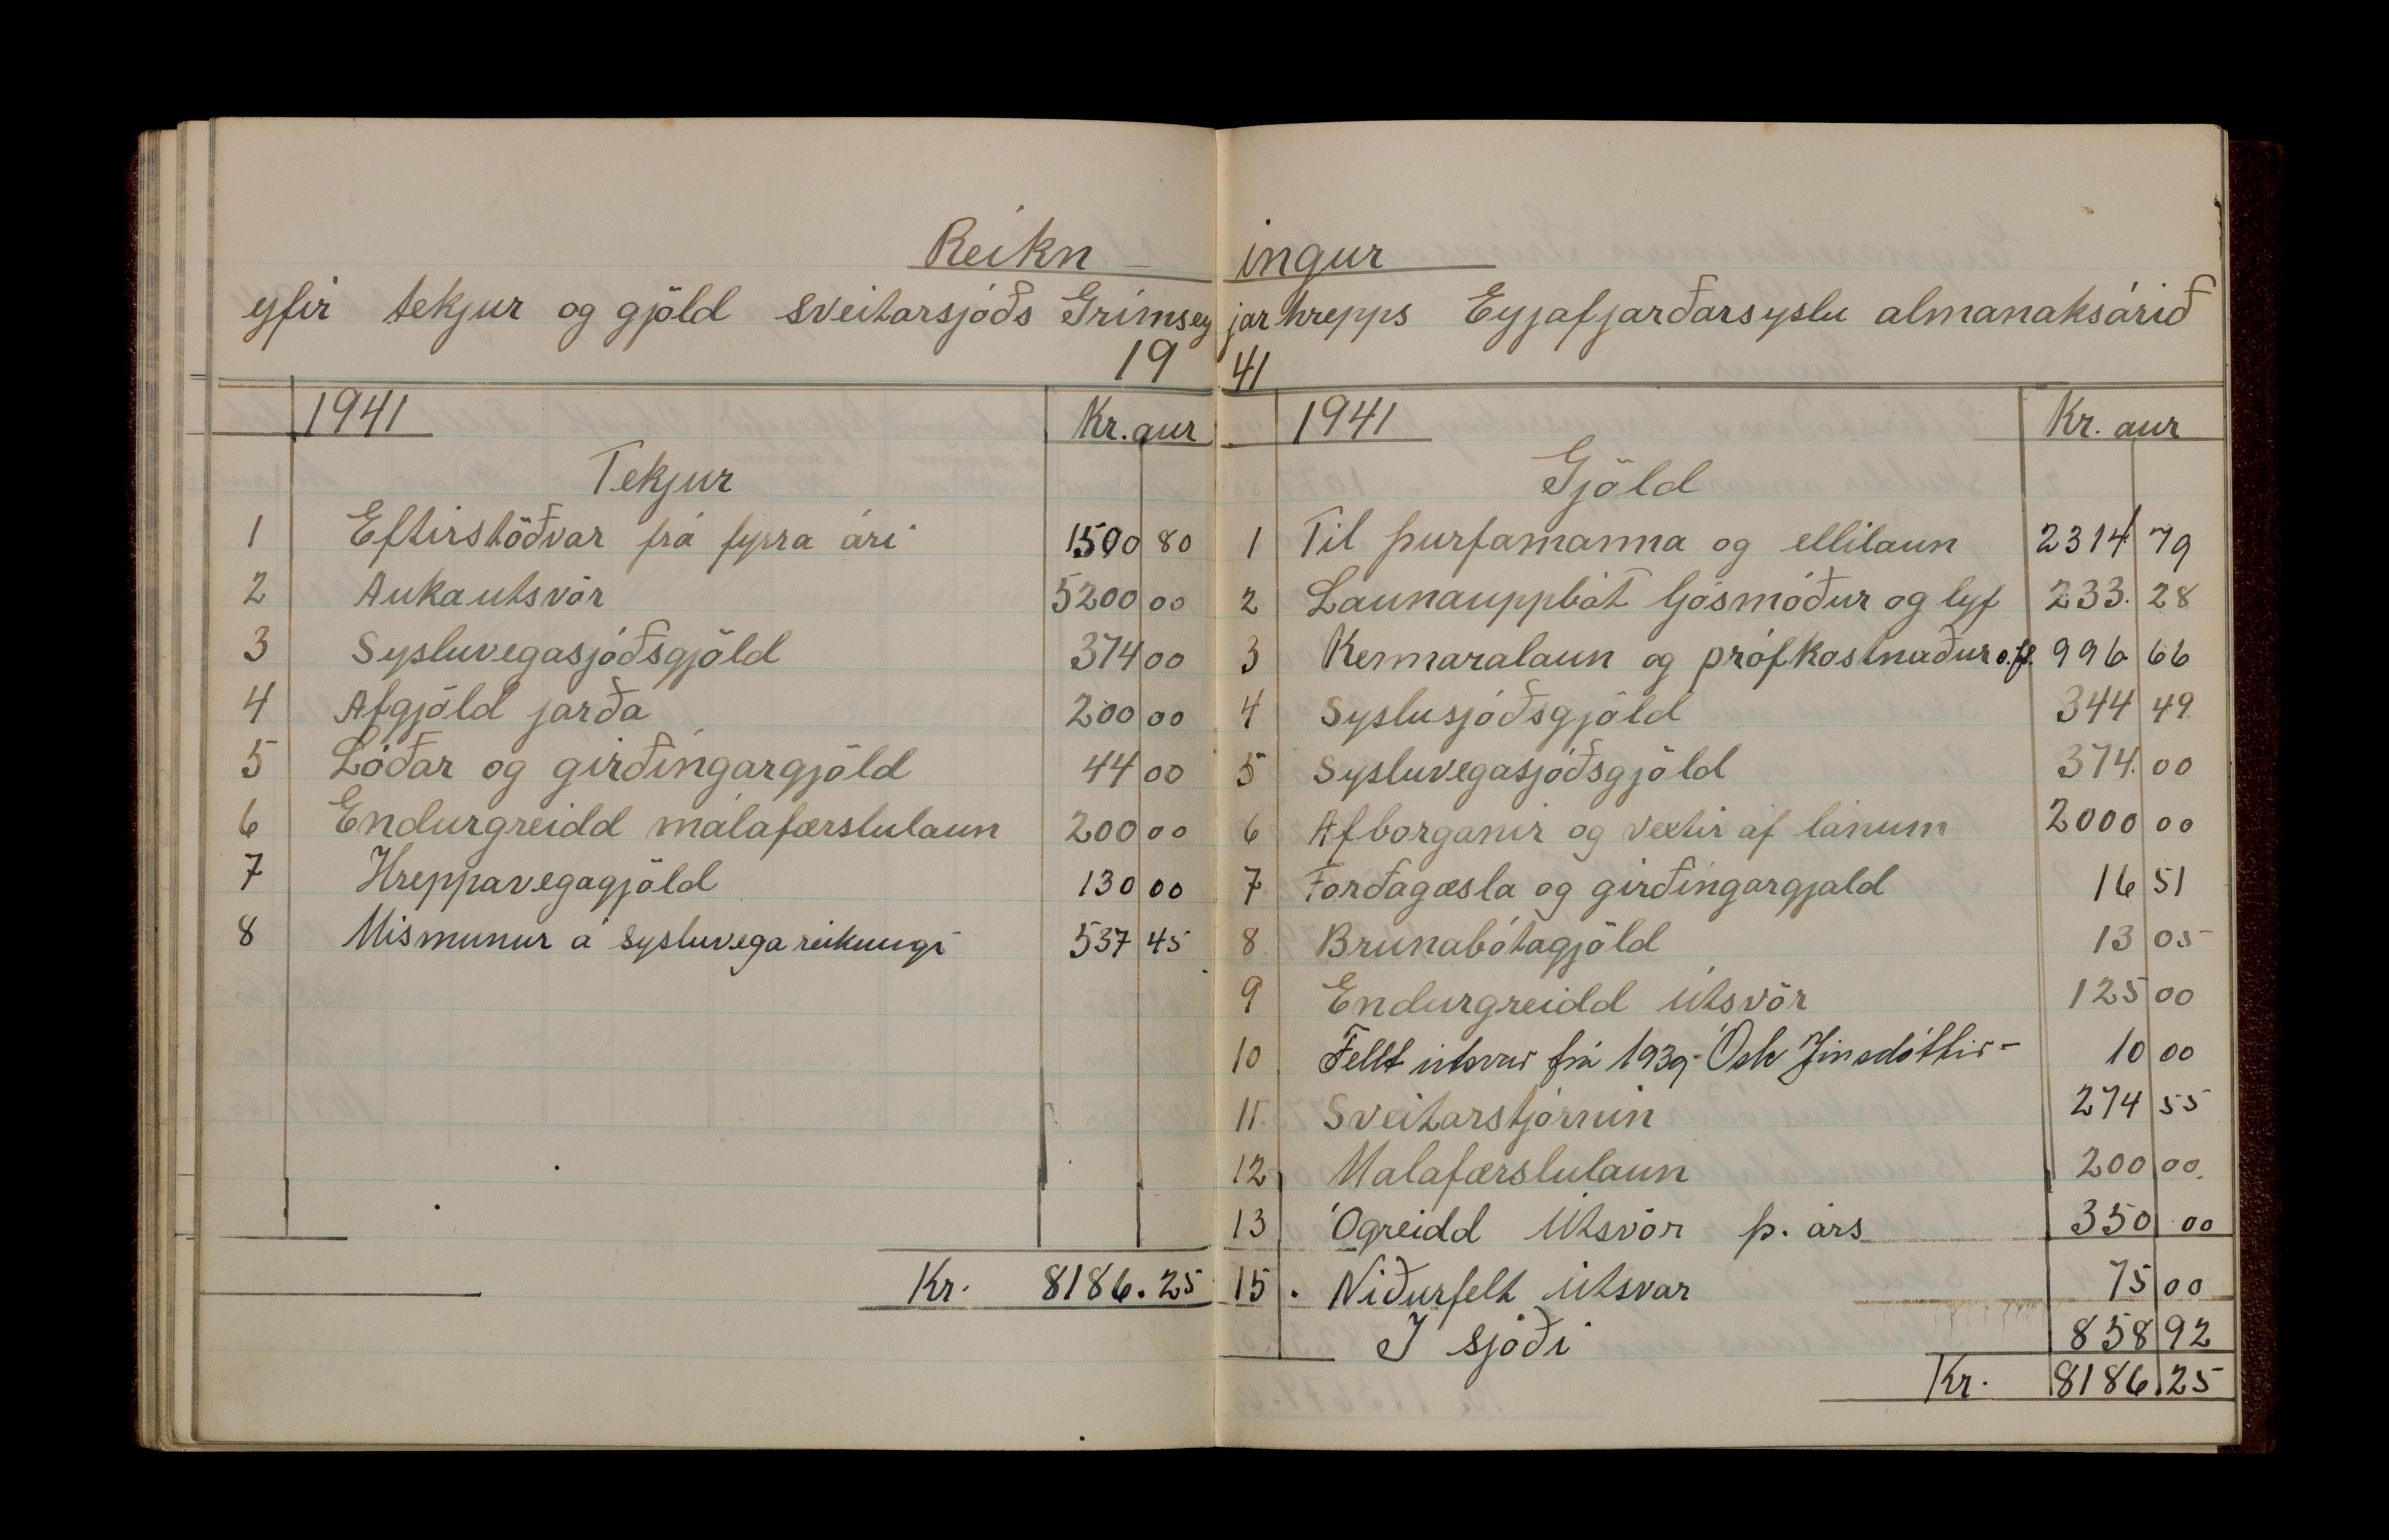 Reikningur
yfir tekjur og gjöld sveitarsjóðs Grímseyjarhrepps Eyjafjarðarsyslu almanaksárið
1941
1941 Kr. aur
Tekjur
1 Eftirstöðvar frá fyrra ári 1500 80
2 Aukautsvör 5200 00
3 Sysluvegasjóðsgjöld 374 00
4 Afgjöld jarða 200 00
5 Lóðar og girðingargjöld 44 00
6 Endurgreidd málafærslulaun 200 00
7 Hreppavegagjöld 130 00
8 Mismunur á sysluvega reikningi 537 45
Kr. 8186.25
1941 Kr. aur
Gjöld
1 Til þurfamanna og ellilaun 2314 79
2 Launauppbót ljósmóður og lyf 233. 28
3 Kennaralaun og prófkostnaður o.fl. 996 66
4 Syslusjóðsgjöld 344 49
5 Sysluvegasjóðsgjöld 374. 00
6 Afborganir og vextir af lánum 2000 00
7 Forðagæsla og girðingargjald 16 51
8 Brunabótagjöld 13 05
9 Endurgreidd útsvör 125 00
10 Fellt útsvar frá 1939 - Ósk - 10 00
11 Sveitarstjórnin 274 55
12 Malafærslulaun 200 00
13 Ógreidd útsvör þ. árs 350 00
15. Niðurfelt útsvar 75 00
I sjóði 858 92
Kr. 8186.25